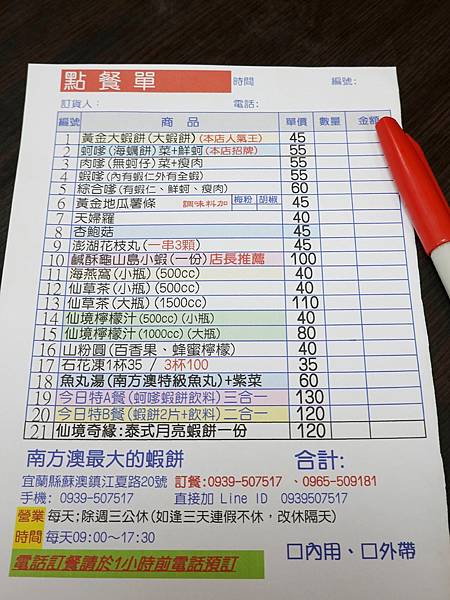 點餐單 時間 編號:
訂貨人: 電話:
編號 商品 單價 數量 金額
1 黃金大蝦餅(大蝦餅)(本店人氣王) 45
2 蚵嗲(海蠣餅)菜+鮮蚵(本店招牌) 55
3 肉嗲(無蚵仔)菜+瘦肉 55
4 蝦嗲(內有蝦仁外有全蝦) 55
5 綜合嗲(有蝦仁、鮮蚵、瘦肉) 60
6 黃金地瓜薯條 調味料加 梅粉 胡椒 45
7 天婦羅 40
8 杏鮑菇 45
9 澎湖花枝丸(一串3顆) 45
10 鹹酥龜山島小蝦(一份)店長推薦 100
11 海燕窩(小瓶)(500cc) 40
12 仙草茶(小瓶)(500cc) 40
13 仙草茶(大瓶)(1500cc) 110
14 仙境檸檬汁(500cc)(小瓶) 40
15 仙境檸檬汁(1000cc)(大瓶) 80
16 山粉圓(百香果、蜂蜜檸檬) 40
17 石花凍1杯35 / 3杯100 35
18 魚丸湯(南方澳特級魚丸)+紫菜 60
19 今日特A餐(蚵嗲蝦餅飲料)三合一 130
20 今日特B餐(蝦餅2片+飲料)二合一 120
21 仙境奇緣:泰式月亮蝦餅一份 120
南方澳最大的蝦餅 合計:
宜蘭縣蘇澳鎮江夏路20號 訂餐:0939-507517 、0965-509181
手機: 0939-507517 直接加 Line ID 0939507517
營業 每天;除週三公休(如逢三天連假不休，改休隔天)
時間 每天09:00~17:30
電話訂餐請於1小時前電話預訂 口內用、口外帶